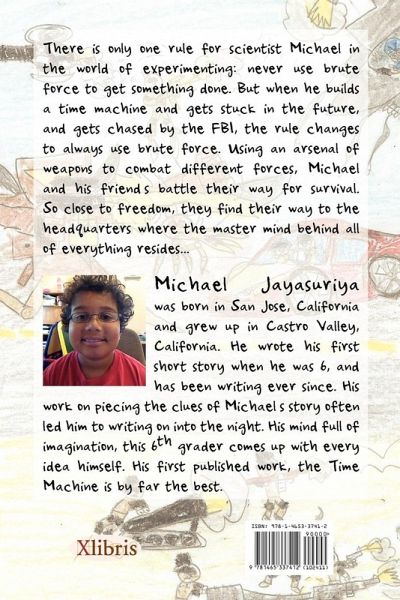 There is only one rule for scientist Michael in
the world of experimenting: never use brute
force to get something done. But when he builds
a time machine and gets stuck in the future,
and gets chased by the FBI, the rule changes
to always use brute force. Using an arsenal of
weapons to combat different forces, Michael
and his friends battle their way for survival.
So close to freedom, they find their way to the
headquarters where the master mind behind all
of everything resides...
Michael Jayasuriya
was born in San Jose, California
and grew up in Castro Valley,
California. He wrote his first
short story when he was 6, and
has been writing ever since. His
work on piecing the clues of Michael's story often
led him to writing on into the night. His mind full of
imagination, this 6th grader comes up with every
idea himself. His first published work, the Time
Machine is by far the best.
Xlibris
ISBN: 978-1-4653-3741-2
90000
9 781465 337412
(102411)